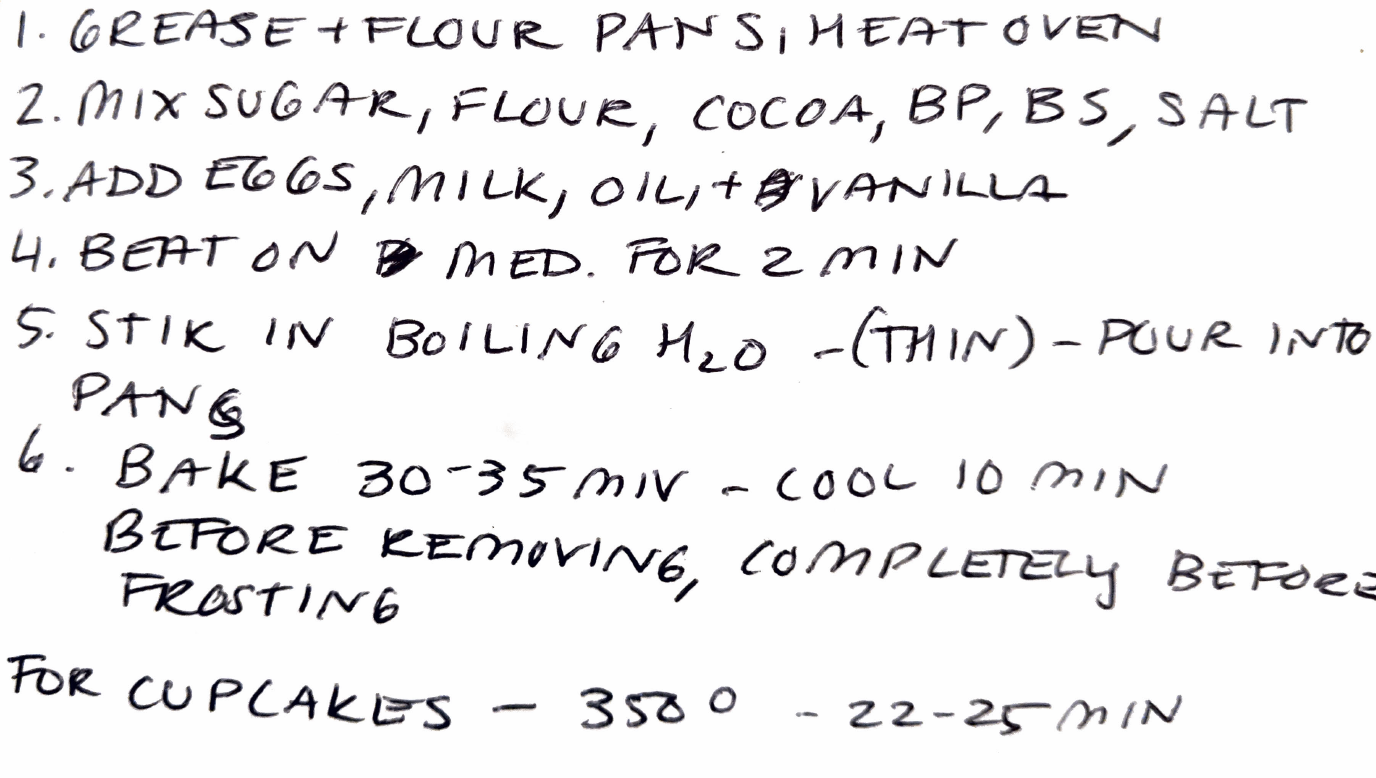 1. GREASE + FLOUR PANS; HEAT OVEN
2. MIX SUGAR, FLOUR, COCOA, BP, BS, SALT
3. ADD EGGS, MILK, OIL, + VANILLA
4. BEAT ON MED. FOR 2 MIN
5. STIR IN BOILING H2O - (THIN) - POUR INTO
PANS
6. BAKE 30-35 MIN - COOL 10 MIN
BEFORE REMOVING, COMPLETELY BEFORE
FROSTING
FOR CUPCAKES - 350° - 22-25 MIN